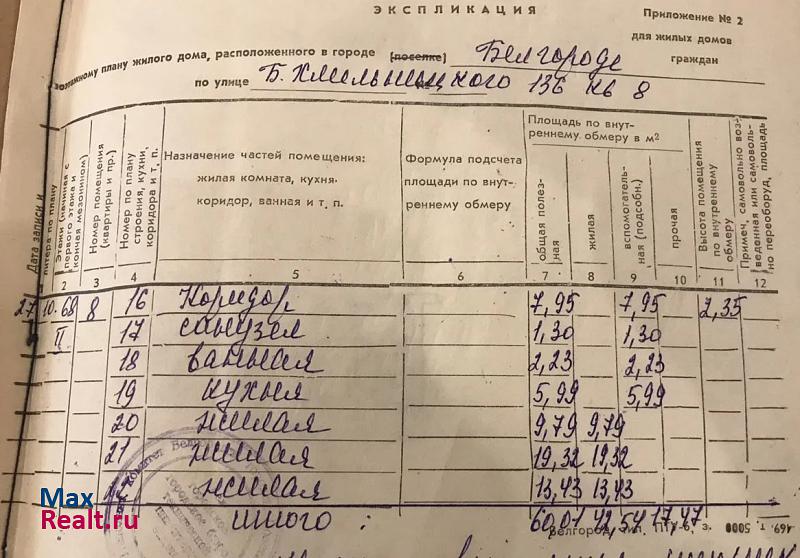 ЭКСПЛИКАЦИЯ
Приложение № 2
для жилых домов
граждан
поэтажному плану жилого дома, расположенного в городе (поселке) Белгороде
по улице Б. Хмельницкого 136 кв 8
Дата записи и литера по плану
Этажи (начиная с первого этажа и кончая мезонином)
Номер помещения (квартиры и пр.)
Номер по плану строения, кухни, коридора и т. п.
Назначение частей помещения:
жилая комната, кухня
коридор, ванная и т. п.
Формула подсчета
площади по внут-
реннему обмеру
Площадь по внут-
реннему обмеру в м2
общая полез-
ная
жилая
вспомогатель-
ная (подсобн.)
прочая
Высота помещения
по внутреннему
обмеру
Примеч, самовольно воз-
веденная или самоволь-
но переоборуд, площадь
2 3 4 5 6 7 8 9 10 11 12
27 10.68 8 16 Коридор 7,95 7,95 2,35
II 17 санузел 1,30 1,30
18 ванная 2,23 2,23
19 кухня 5,99 5,99
20 жилая 9,79 9,79
21 жилая 19,32 19,32
жилая 13,43 13,43
итого: 60,01 42,54 17,47
Белгород, тип. з. 469. т. 5000
Max
Realt.ru